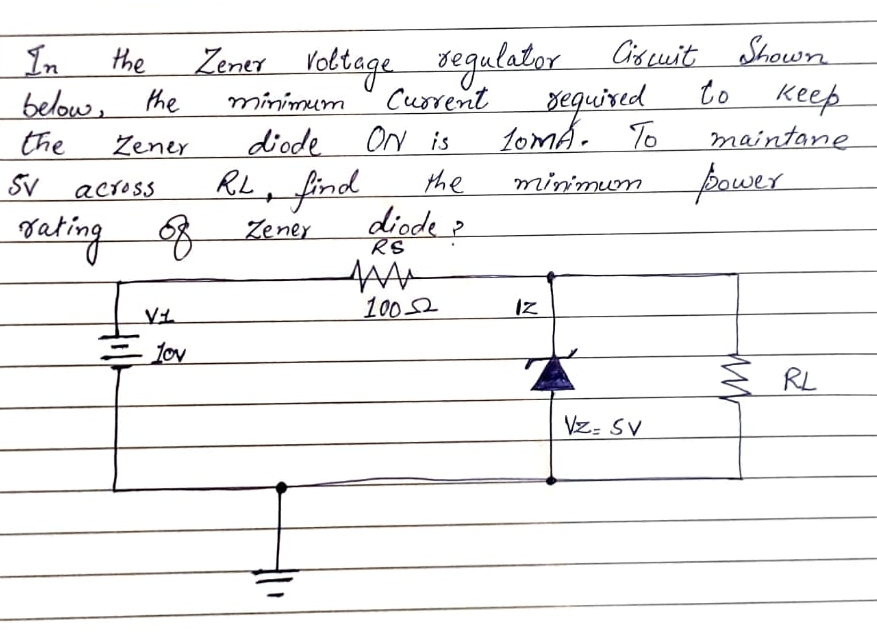 In the Zener Voltage regulator Circuit Shown
below, the minimum Current required to Keep
the Zener diode ON is 10mA. To maintane
5V across RL, find the minimum power
rating of Zener diode?
RS
100Ω
IZ
V1
10V
RL
VZ= 5V